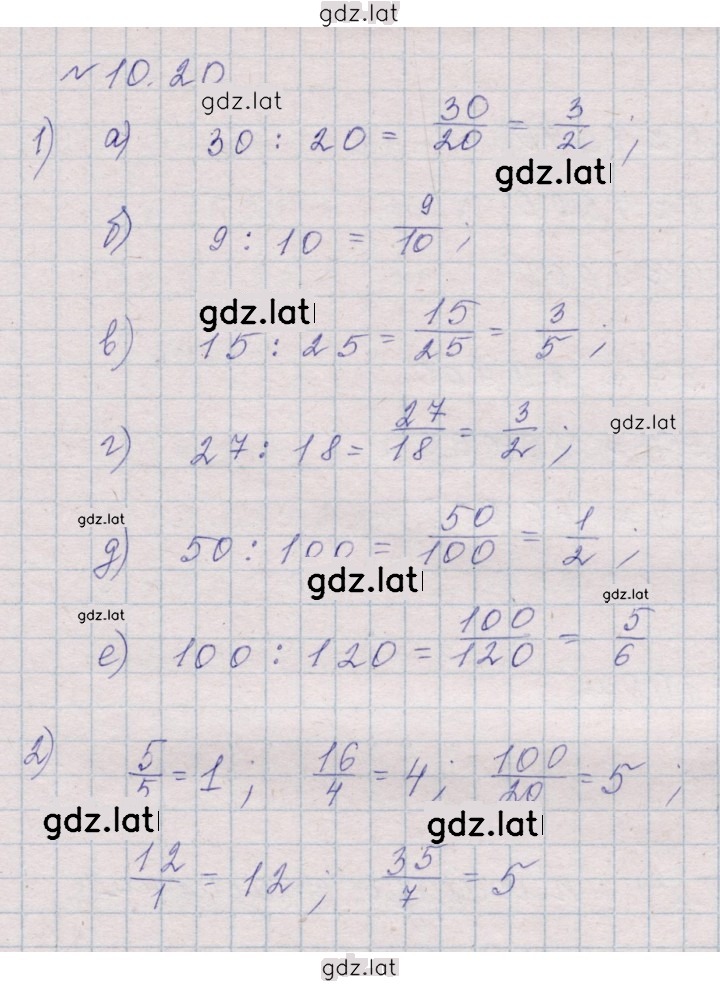 gdz.lat
№ 10.20
gdz.lat
1) а) 30 : 20 = 30/20 = 3/2 ;
gdz.lat
б) 9 : 10 = 9/10 ;
gdz.lat
в) 15 : 25 = 15/25 = 3/5 ;
г) 27 : 18 = 27/18 = 3/2 ;
gdz.lat
gdz.lat
д) 50 : 100 = 50/100 = 1/2 ;
gdz.lat
gdz.lat
gdz.lat
е) 100 : 120 = 100/120 = 5/6
2) 5/5 = 1 ; 16/4 = 4 ; 100/20 = 5 ;
gdz.lat
gdz.lat
12/1 = 12 ; 35/7 = 5
gdz.lat